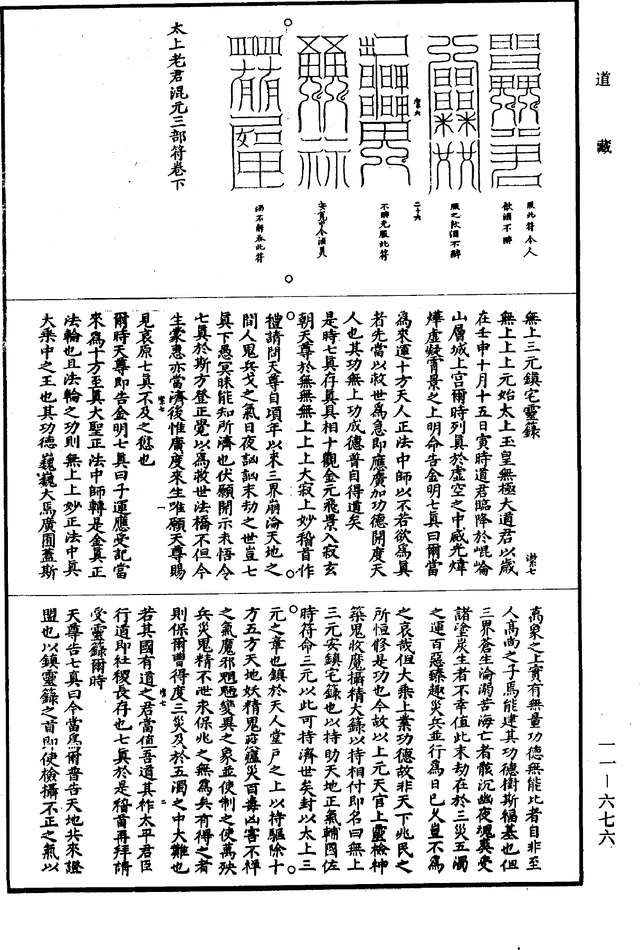 道藏
服此符令人
飲酒不醉
服之飲酒不醉
二十六
不醉先服此符
酒不解吞此符
太上老君混元三部符卷下
無上三元鎮宅靈籙
無上上上元始太上玉皇無極大道君以歲
在壬申十月十五日寅時道君臨降於崐崙
山層城上宮爾時列真於虛空之中威光煒
燁虛凝霄景之上明命告金明七真曰爾當
為來運十方天人正法中師以不若欲為真
者先當以救世為急即應廣加功德開度天
人也其功無上功成德普自得道矣
是時七真存真具相十觀金元飛景入寂玄
朝天尊於無無無上上上大寂上妙稽首作
禮請問天尊自頃年以來三界崩淪天地之
間人鬼兵戈之氣日夜訩訩末劫之世豈七
真下愚冥昧能知所濟也伏願開示未悟令
七真於斯方登正覺以為救世法橋不但今
生蒙惠亦當濟後惟廣度來生唯願天尊賜
見哀原七真不及之愆也
一
爾時天尊即告金明七真曰子運應受記當
來為十方至真大聖正法中師轉是金真正
法輪也且法輪之功則無上上妙正法中真
大乘中之王也其功德巍巍大焉廣囿蓋斯
萬象之上實有無量功德無能比者自非至
人高尚之子焉能建其功德樹斯福基也但
三界蒼生淪溺苦海亡者骸沉幽夜魂爽受
諸塗炭生者不幸值此末劫在於三災五濁
之運百惡臻趣災兵並行為日已久豈不為
之哀哉但大乘上業功德故非天下兆民之
所恒修是功也今故以上元天官上靈檢神
築鬼收魔攝精大籙以持相付即名曰無上
三元安鎮宅籙也以持助天地正氣輔國佐
時符命三元以此可持濟世矣封以太上三
元之章也鎮於天人堂戶之上以持驅除十
方五方天地妖精鬼疫瘟災百毒凶害不祥
之氣魔邪魍魎變異之象並使制之使萬殃
兵災鬼精不泄永保兆之無為矣有得之者
則保爾曹得度三災及於五濁之中大難也
二
若其國有道之君當值吾道其祚太平君臣
行道即社稷長存也七真於是稽首再拜請
受靈籙爾時
天尊告七真曰今當為爾普告天地共來證
盟也以鎮靈籙之首即使檢攝不正之氣以
一一—六七六